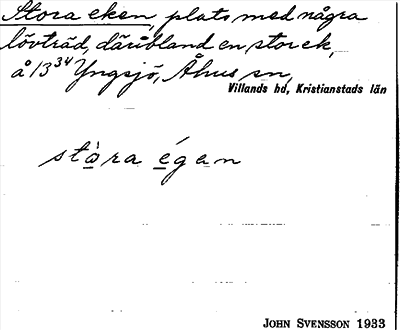 Stora eken, plats med några
lövträd, däribland en stor ek,
å 13³⁴ Yngsjö, Åhus sn,
Villands hd, Kristianstads län
stòra égan
JOHN SVENSSON 1933